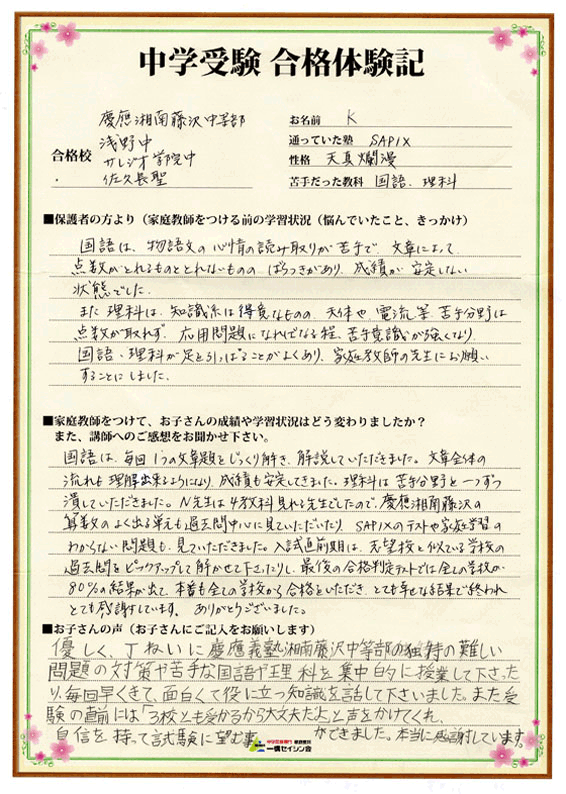 中学受験 合格体験記
合格校
慶應湘南藤沢中等部
浅野中
サレジオ学院中
佐久長聖
お名前 K
通っていた塾 SAPIX
性格 天真爛漫
苦手だった教科 国語、理科
■保護者の方より（家庭教師をつける前の学習状況（悩んでいたこと、きっかけ）
国語は、物語文の心情の読み取りが苦手で、文章によって
点数がとれるものととれないものの ばらつきがあり、成績が安定しない
状態でした。
また理科は、知識系は得意なものの、天体や電流等 苦手分野は
点数が取れず、応用問題になればなる程、苦手意識が強くなり
国語・理科が足を引っぱることがよくあり、家庭教師の先生にお願い
することにしました。
■家庭教師をつけて、お子さんの成績や学習状況はどう変わりましたか？
また、講師へのご感想をお聞かせ下さい。
国語は、毎回1つの文章題をじっくり解き、解説していただきました。文章全体の
流れも理解出来るようになり、成績も安定してきました。理科は苦手分野を一つずつ
潰していただきました。N先生は4教科見れる先生でしたので、慶應湘南藤沢の
算数のよく出る単元も過去問中心に見ていただいたり、SAPIXのテストや家庭学習の
わからない問題も、見ていただきました。入試直前期は、志望校と似ている学校の
過去問をピックアップして解かせて下さったりし、最後の合格判定テストでは全ての学校が
80%の結果が出て、本番も全ての学校から合格をいただき、とても幸せな結果で終われ
とても感謝しています。ありがとうございました。
■お子さんの声（お子さんにご記入をお願いします）
優しく、丁ねいに慶應義塾湘南藤沢中等部の独特の難しい
問題の対策や苦手な国語や理科を集中的に授業して下さった
り、毎回早くきて、面白くて役に立つ知識を話して下さいました。また受
験の直前には「3校とも受かるから大丈夫だよ」と声をかけてくれ、
自信を持って試験に望む事ができました。本当に感謝しています。
中学受験専門 家庭教師
一橋セイシン会